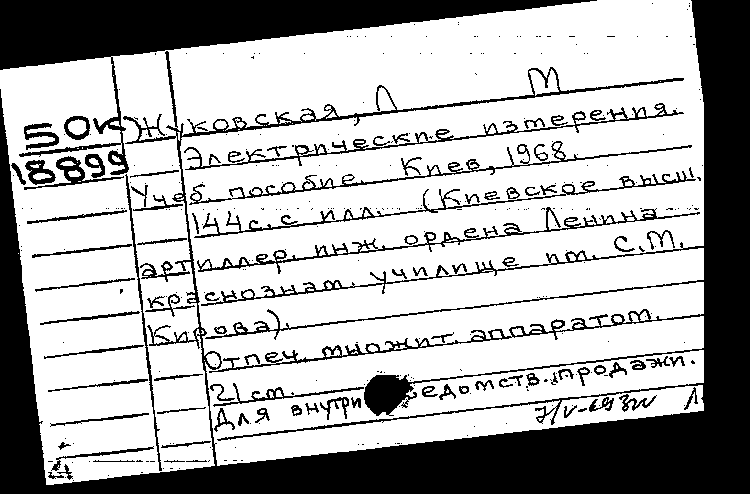 50К
18899
Жуковская, Л М
Электрические измерения.
Учеб. пособие. Киев, 1968.
144с. с илл. (Киевское высш.
артиллер. инж. ордена Ленина
краснознам. училище им. С.М.
Кирова).
Отпеч. множит. аппаратом.
21 см.
Для внутри едомств. продажи.